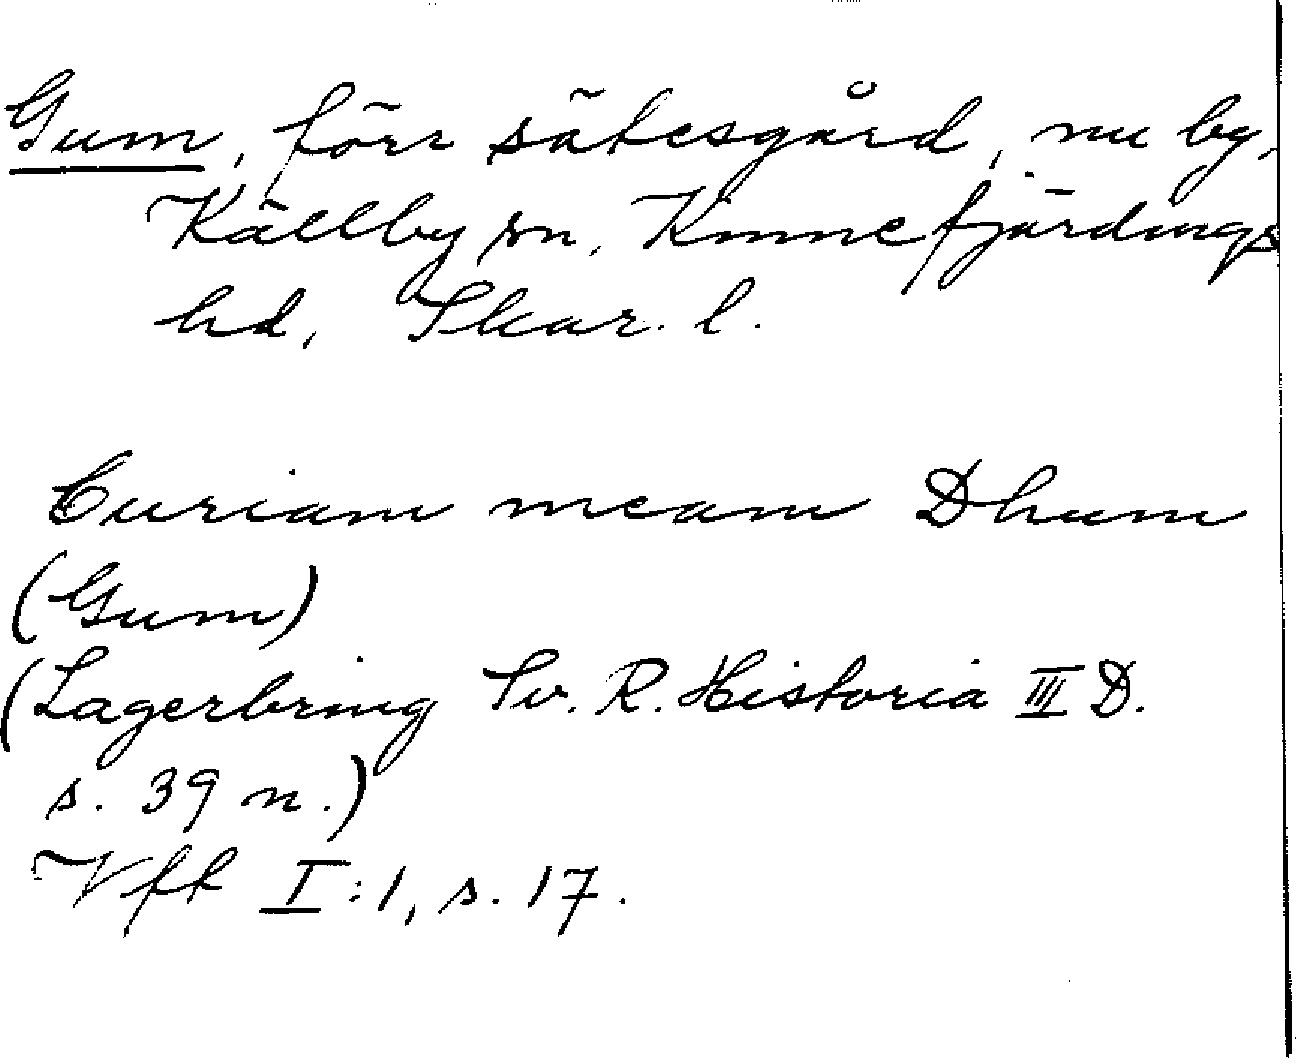 Gum, förr sätesgård, nu by,
Källby sn, Kinnefjärdings
hd, Skar. l.
Curiam meam Dhum
(Gum)
(Lagerbring Sv. R. Historia III D.
s. 39 n.)
Vff I:1, s. 17.